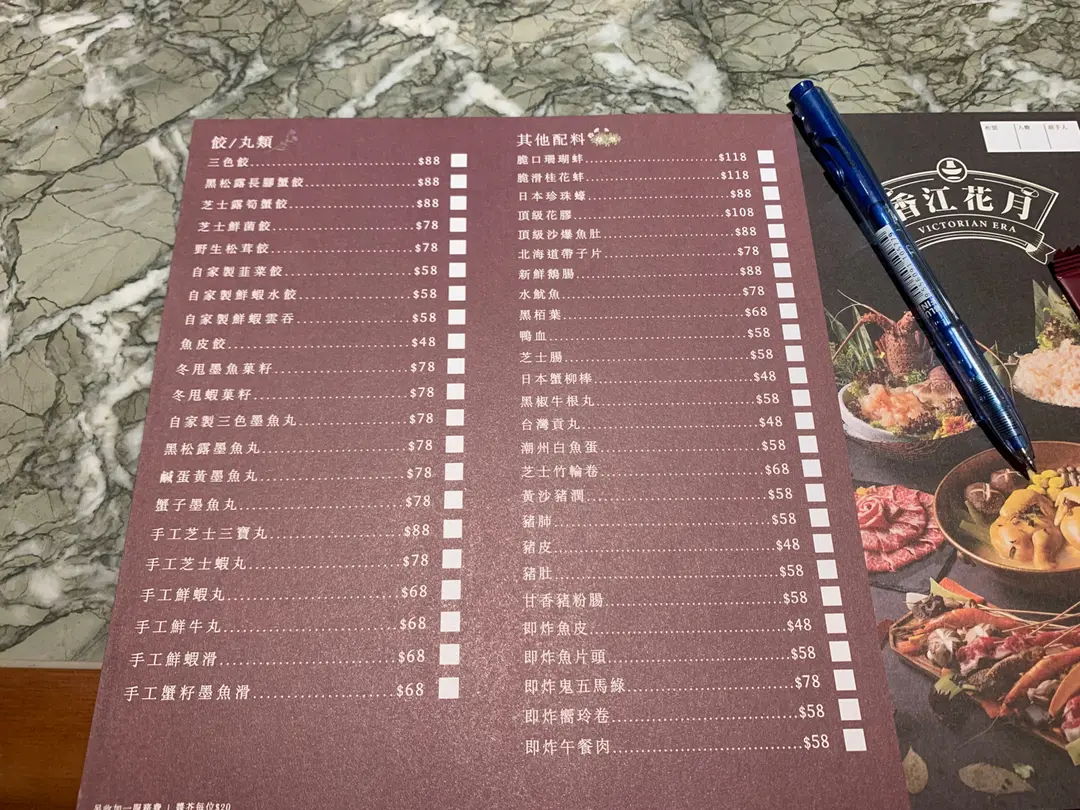 餃/丸類
三色餃 $88
黑松露長膠蟹餃 $88
芝士露筍蟹餃 $88
芝士鮮菌餃 $78
野生松茸餃 $78
自家製韮菜餃 $58
自家製鮮蝦水餃 $58
自家製鮮蝦雲吞 $58
魚皮餃 $48
冬甩墨魚菓籽 $78
冬甩蝦菓籽 $78
自家製三色墨魚丸 $78
黑松露墨魚丸 $78
鹹蛋黃墨魚丸 $78
蟹子墨魚丸 $78
手工芝士三寶丸 $88
手工芝士蝦丸 $78
手工鮮蝦丸 $68
手工鮮牛丸 $68
手工鮮蝦滑 $68
手工蟹籽墨魚滑 $68
其他配料
脆口珊瑚蚌 $118
脆滑桂花蚌 $118
日本珍珠蠔 $88
頂級花膠 $108
頂級沙爆魚肚 $88
北海道帶子片 $78
新鮮鵝腸 $88
水魷魚 $78
黑栢葉 $68
鴨血 $58
芝士腸 $58
日本蟹柳棒 $48
黑椒牛根丸 $58
台灣貢丸 $48
潮州白魚蛋 $58
芝士竹輪卷 $68
黃沙豬潤 $58
豬肺 $58
豬皮 $48
豬肚 $58
甘香豬粉腸 $58
即炸魚皮 $48
即炸魚片頭 $58
即炸鬼五馬綠 $78
即炸嚮玲卷 $58
即炸午餐肉 $58
另收加一服務費 | 醬芥每位$20
人數
香江花月
VICTORIAN ERA